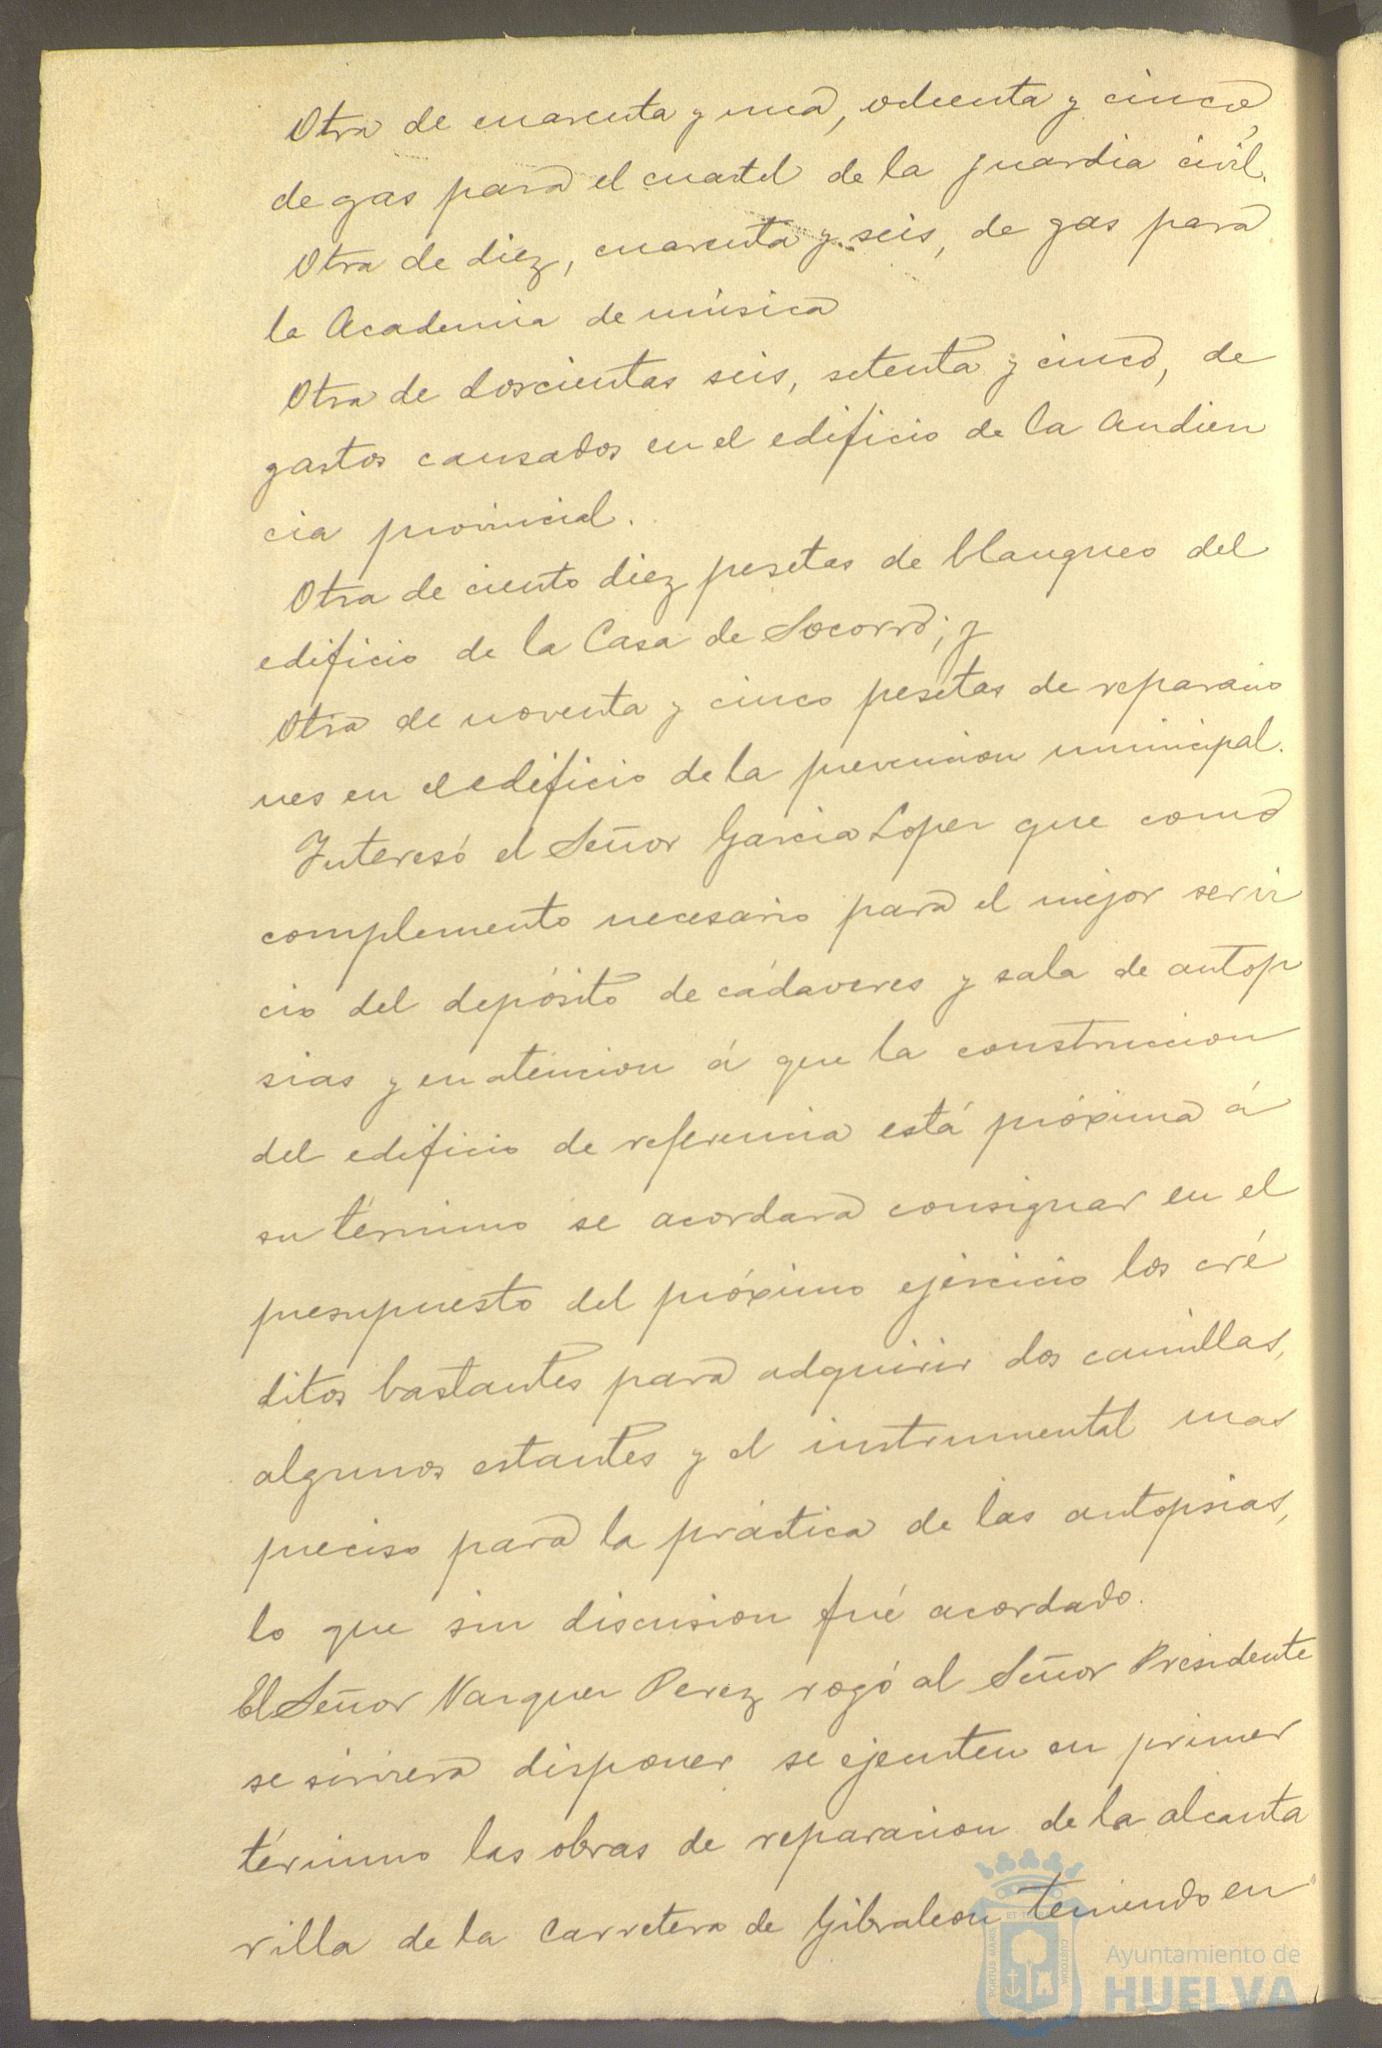 Otra de cuarenta y una, ochenta y cinco,
de gas para el cuartel de la guardia civil.
Otra de diez, cuarenta y seis, de gas para
la Academia de música
Otra de doscientas seis, setenta y cinco, de
gastos causados en el edificio de la Audien
cia provincial.
Otra de ciento diez pesetas de blanqueo del
edificio de la Casa de Socorro; y
Otra de noventa y cinco pesetas de reparacio
nes en el edificio de la prevencion municipal.
Interesó el Señor Garcia Lopez que como
complemento necesario para el mejor servi
cio del depósito de cádaveres y sala de autop
sias y en atencion á que la construccion
del edificio de referencia está próxima á
su término se acordara consignar en el
presupuesto del próximo ejercicio los cré
ditos bastantes para adquirir dos camillas,
algunos estantes y el instrumental mas
preciso para la práctica de las autopsias,
lo que sin discusion fué acordado.
El Señor Vazquez Perez rogó al Señor Presidente
se sirviera disponer se ejecuten en primer
término las obras de reparacion de la alcanta
rilla de la Carretera de Gibraleon teniendo en
PORTUS MARIS ET TERRAE CUSTODIA
Ayuntamiento de
HUELVA